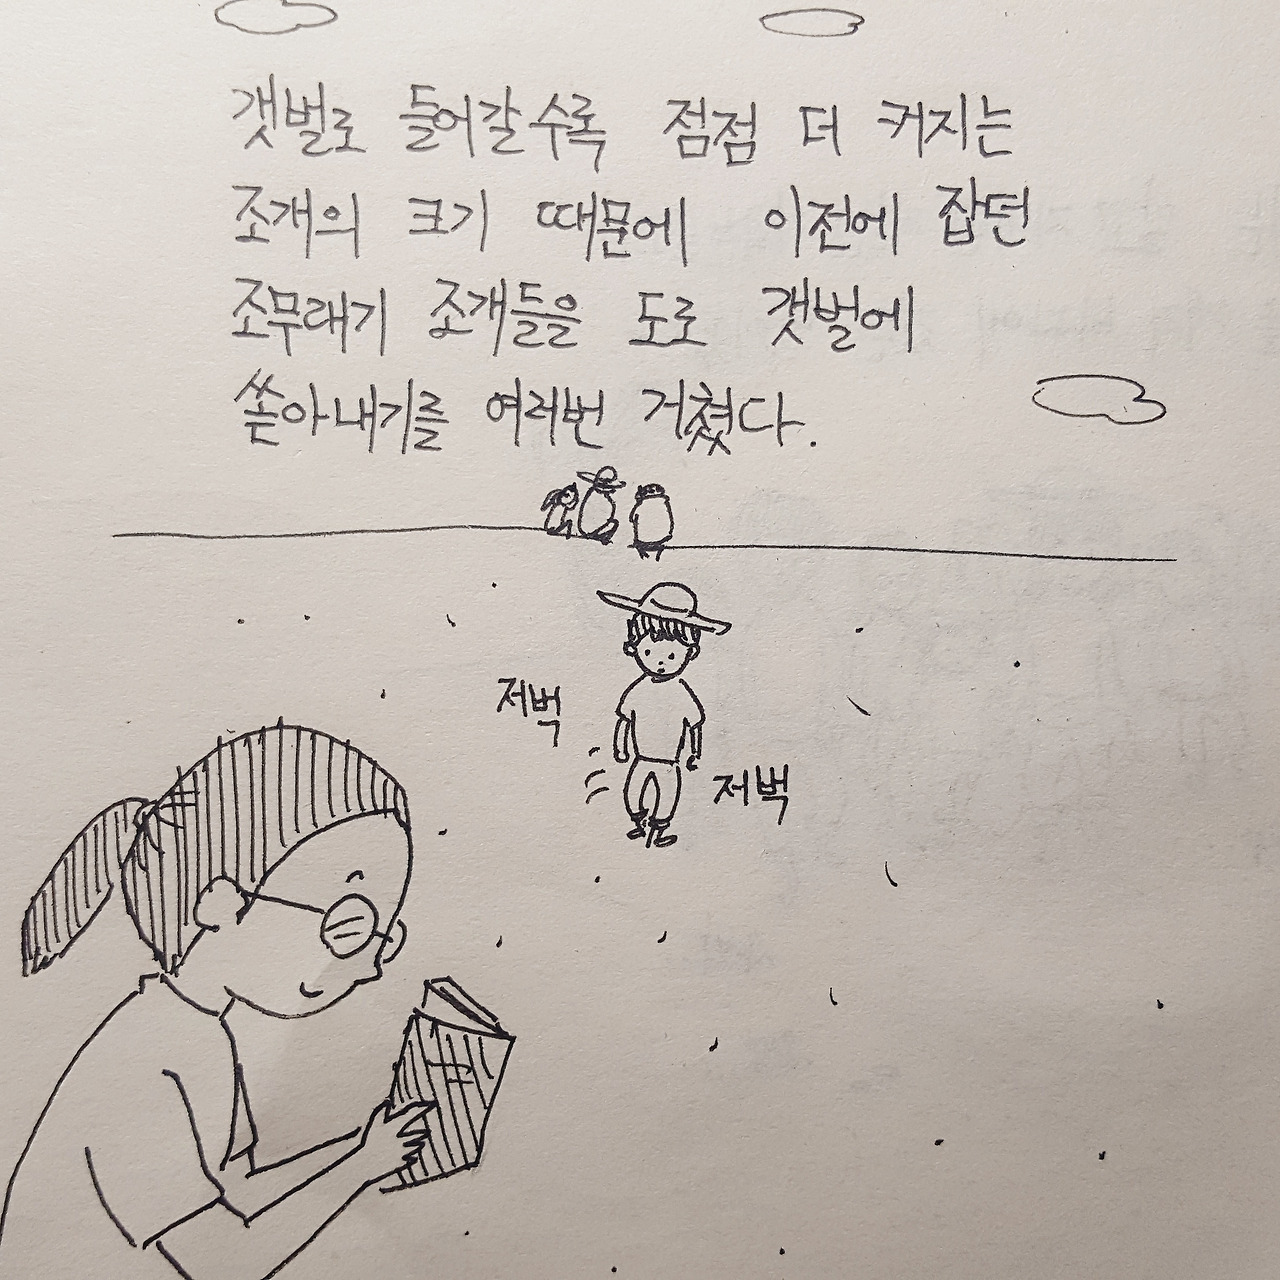 갯벌로 들어갈수록 점점 더 커지는
조개의 크기 때문에 이전에 잡던
조무래기 조개들을 도로 갯벌에
쏟아내기를 여러번 거쳤다.
저벅
저벅